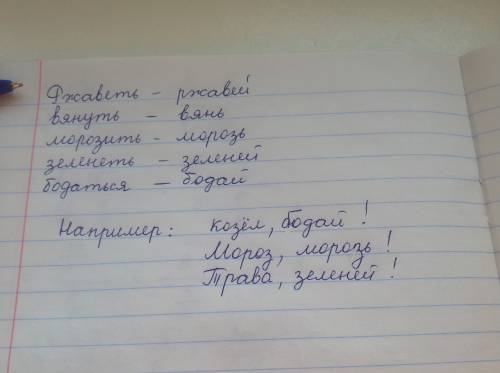 Ржаветь - ржавей
вянуть - вянь
морозить - морозь
зеленеть - зеленей
бодаться - бодай
Например: козёл, бодай!
Мороз, морозь!
Трава, зеленей!